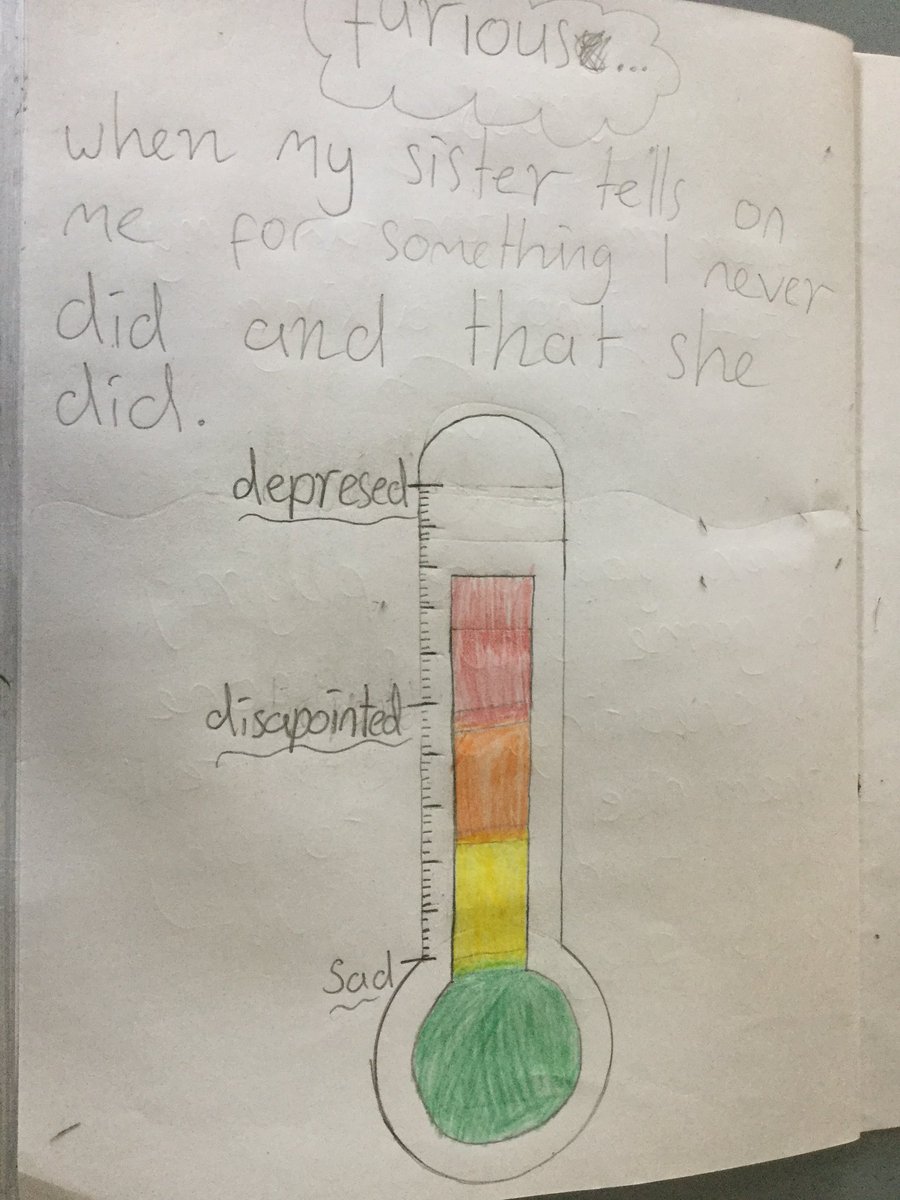 furious...
when my sister tells on
me for something I never
did and that she
did.
depresed
disapointed
sad